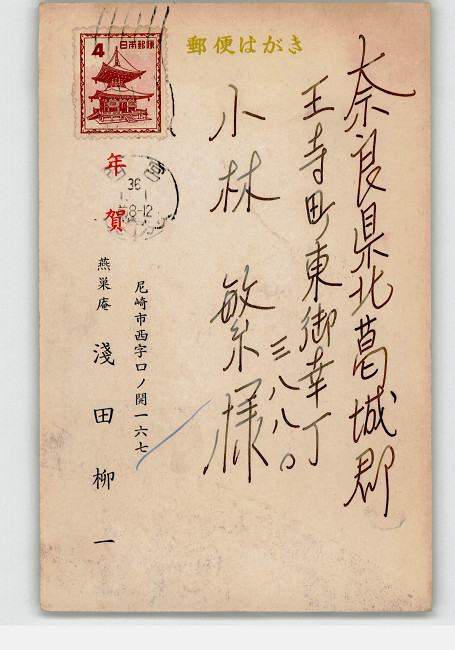 郵便はがき
4
日本郵便
年賀
36
1
8-12
奈良県北葛城郡
王寺町東御幸丁
三八八〇
小林繁様
尼崎市西字口ノ開一六七
燕巣庵 淺田柳一